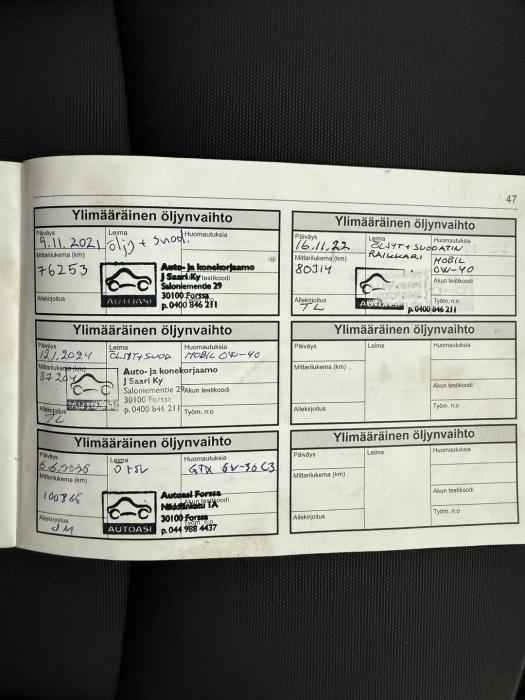 47
Ylimääräinen öljynvaihto
Päiväys Leima Huomautuksia
9.11.2021 öljy + suod.
Mittarilukema (km)
76253
Auto- ja konekorjaamo
J Saari Ky
Saloniementie 29
30100 Forssa
p. 0400 846 211
AUTOASI
Allekirjoitus
Ylimääräinen öljynvaihto
Päiväys Leima Huomautuksia
16.11.22 ÖLJYT + SUODATIN
Mittarilukema (km)
80314
MOBIL
0W-40
Akun testikoodi
Allekirjoitus Työm. n:o
TL
p.0400 846 211
Ylimääräinen öljynvaihto
Päiväys Leima Huomautuksia
12.1.2024 ÖLJYT+SUOD MOBIL 0W-40
Mittarilukema (km)
Auto- ja konekorjaamo
J Saari Ky
Saloniementie 29 Akun testikoodi
30100 Forssa
p. 0400 846 211 Työm. n:o
Allekirjoitus
TL
Ylimääräinen öljynvaihto
Päiväys Leima Huomautuksia
Mittarilukema (km)
Akun testikoodi
Allekirjoitus Työm. n:o
Ylimääräinen öljynvaihto
Päiväys Leima Huomautuksia
Mittarilukema (km)
Autoasi Forssa
30100 Forssa
p. 044 988 4437
AUTOASI
Allekirjoitus
JM
Ylimääräinen öljynvaihto
Päiväys Leima Huomautuksia
Mittarilukema (km)
Akun testikoodi
Allekirjoitus Työm. n:o